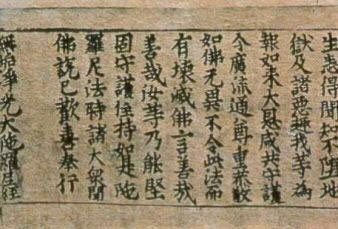 生悉得聞知不墮地
獄及諸惡趣我等為
報如来大恩咸共守護
令廣流通尊重恭敬
如佛无異不令此法而
有壞滅佛言善哉
善哉汝等乃能堅
固守護住持如是陁
羅尼法時諸大衆聞
佛説已歡喜奉行
無垢淨光大陁羅尼經